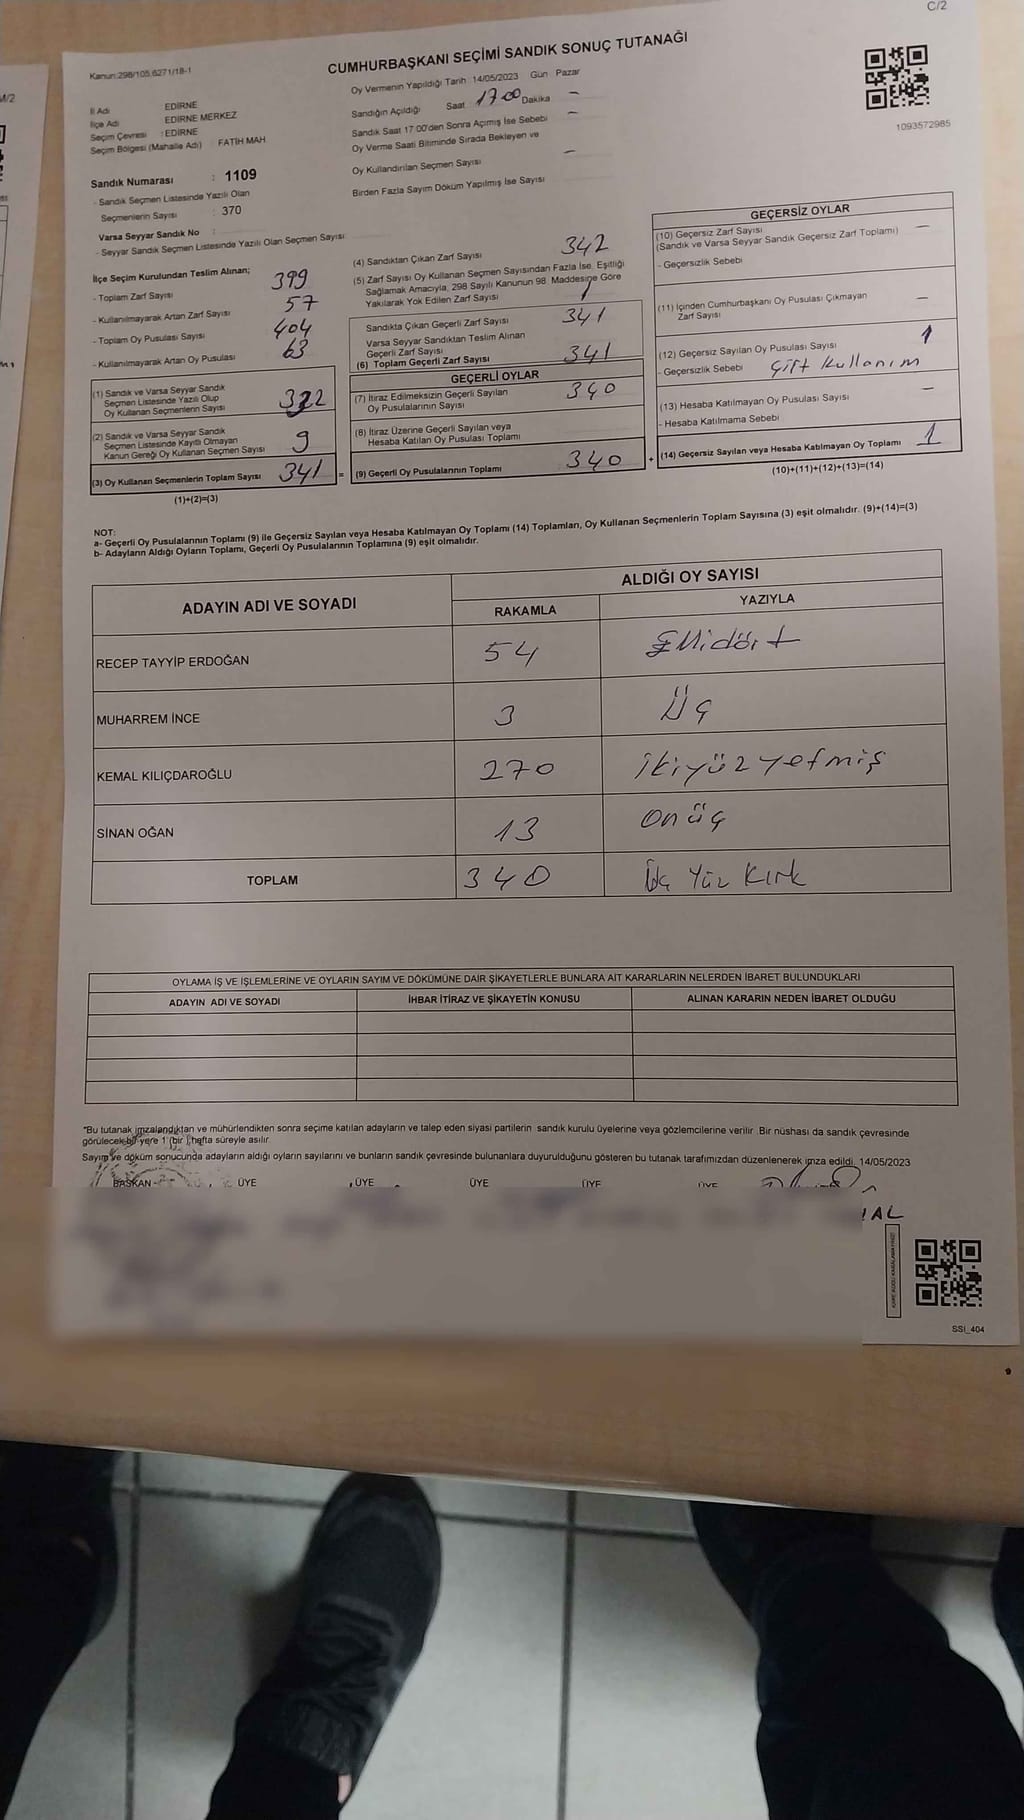 C/2
Kanun:298/105,6271/18-1
CUMHURBAŞKANI SEÇİMİ SANDIK SONUÇ TUTANAĞI
M/2
İl Adı EDİRNE
İlçe Adı EDİRNE MERKEZ
Seçim Çevresi : EDİRNE
Seçim Bölgesi (Mahalle Adı) FATİH MAH
Sandık Numarası : 1109
- Sandık Seçmen Listesinde Yazılı Olan
Seçmenlerin Sayısı : 370
Varsa Seyyar Sandık No :
- Seyyar Sandık Seçmen Listesinde Yazılı Olan Seçmen Sayısı
Oy Vermenin Yapıldığı Tarih 14/05/2023 Gün Pazar
Sandığın Açıldığı Saat 17 00 Dakika –
Sandık Saat 17:00'den Sonra Açımış İse Sebebi –
Oy Verme Saati Bitiminde Sırada Bekleyen ve
Oy Kullandırılan Seçmen Sayısı –
Birden Fazla Sayım Döküm Yapılmış İse Sayısı
1093572985
İlçe Seçim Kurulundan Teslim Alınan;
- Toplam Zarf Sayısı 399
- Kullanılmayarak Artan Zarf Sayısı 57
- Toplam Oy Pusulası Sayısı 404
- Kullanılmayarak Artan Oy Pusulası 63
(1) Sandık ve Varsa Seyyar Sandık
Seçmen Listesinde Yazılı Olup
Oy Kullanan Seçmenlerin Sayısı 332
(2) Sandık ve Varsa Seyyar Sandık
Seçmen Listesinde Kayıtlı Olmayan
Kanun Gereği Oy Kullanan Seçmen Sayısı 9
(3) Oy Kullanan Seçmenlerin Toplam Sayısı 341 =
(1)+(2)=(3)
(4) Sandıktan Çıkan Zarf Sayısı 342
(5) Zarf Sayısı Oy Kullanan Seçmen Sayısından Fazla İse, Eşitliği
Sağlamak Amacıyla, 298 Sayılı Kanunun 98. Maddesine Göre
Yakılarak Yok Edilen Zarf Sayısı 1
Sandıkta Çıkan Geçerli Zarf Sayısı 341
Varsa Seyyar Sandıktan Teslim Alınan
Geçerli Zarf Sayısı
(6) Toplam Geçerli Zarf Sayısı 341
GEÇERLİ OYLAR
(7) İtiraz Edilmeksizin Geçerli Sayılan
Oy Pusulalarının Sayısı 340
(8) İtiraz Üzerine Geçerli Sayılan veya
Hesaba Katılan Oy Pusulası Toplamı
(9) Geçerli Oy Pusulalarının Toplamı 340 +
GEÇERSİZ OYLAR
(10) Geçersiz Zarf Sayısı –
(Sandık ve Varsa Seyyar Sandık Geçersiz Zarf Toplamı)
- Geçersizlik Sebebi
(11) İçinden Cumhurbaşkanı Oy Pusulası Çıkmayan
Zarf Sayısı –
(12) Geçersiz Sayılan Oy Pusulası Sayısı 1
- Geçersizlik Sebebi Çift kullanım
(13) Hesaba Katılmayan Oy Pusulası Sayısı –
- Hesaba Katılmama Sebebi
(14) Geçersiz Sayılan veya Hesaba Katılmayan Oy Toplamı 1
(10)+(11)+(12)+(13)=(14)
NOT:
a- Geçerli Oy Pusulalarının Toplamı (9) ile Geçersiz Sayılan veya Hesaba Katılmayan Oy Toplamı (14) Toplamları, Oy Kullanan Seçmenlerin Toplam Sayısına (3) eşit olmalıdır. (9)+(14)=(3)
b- Adayların Aldığı Oyların Toplamı, Geçerli Oy Pusulalarının Toplamına (9) eşit olmalıdır.
ADAYIN ADI VE SOYADI
ALDIĞI OY SAYISI
RAKAMLA YAZIYLA
RECEP TAYYİP ERDOĞAN 54 Ellidört
MUHARREM İNCE 3 Üç
KEMAL KILIÇDAROĞLU 270 ikiyüzyetmiş
SİNAN OĞAN 13 onüç
TOPLAM 340 Üç Yüz Kırk
OYLAMA İŞ VE İŞLEMLERİNE VE OYLARIN SAYIM VE DÖKÜMÜNE DAİR ŞİKAYETLERLE BUNLARA AİT KARARLARIN NELERDEN İBARET BULUNDUKLARI
ADAYIN ADI VE SOYADI İHBAR İTİRAZ VE ŞİKAYETİN KONUSU ALINAN KARARIN NEDEN İBARET OLDUĞU
*Bu tutanak imzalandıktan ve mühürlendikten sonra seçime katılan adayların ve talep eden siyasi partilerin sandık kurulu üyelerine veya gözlemcilerine verilir. Bir nüshası da sandık çevresinde
görülecek bir yere 1 (bir) hafta süreyle asılır.
Sayım ve döküm sonucunda adayların aldığı oyların sayılarını ve bunların sandık çevresinde bulunanlara duyurulduğunu gösteren bu tutanak tarafımızdan düzenlenerek imza edildi. 14/05/2023
BAŞKAN ÜYE ÜYE ÜYE ÜYE ÜYE
SSI_404